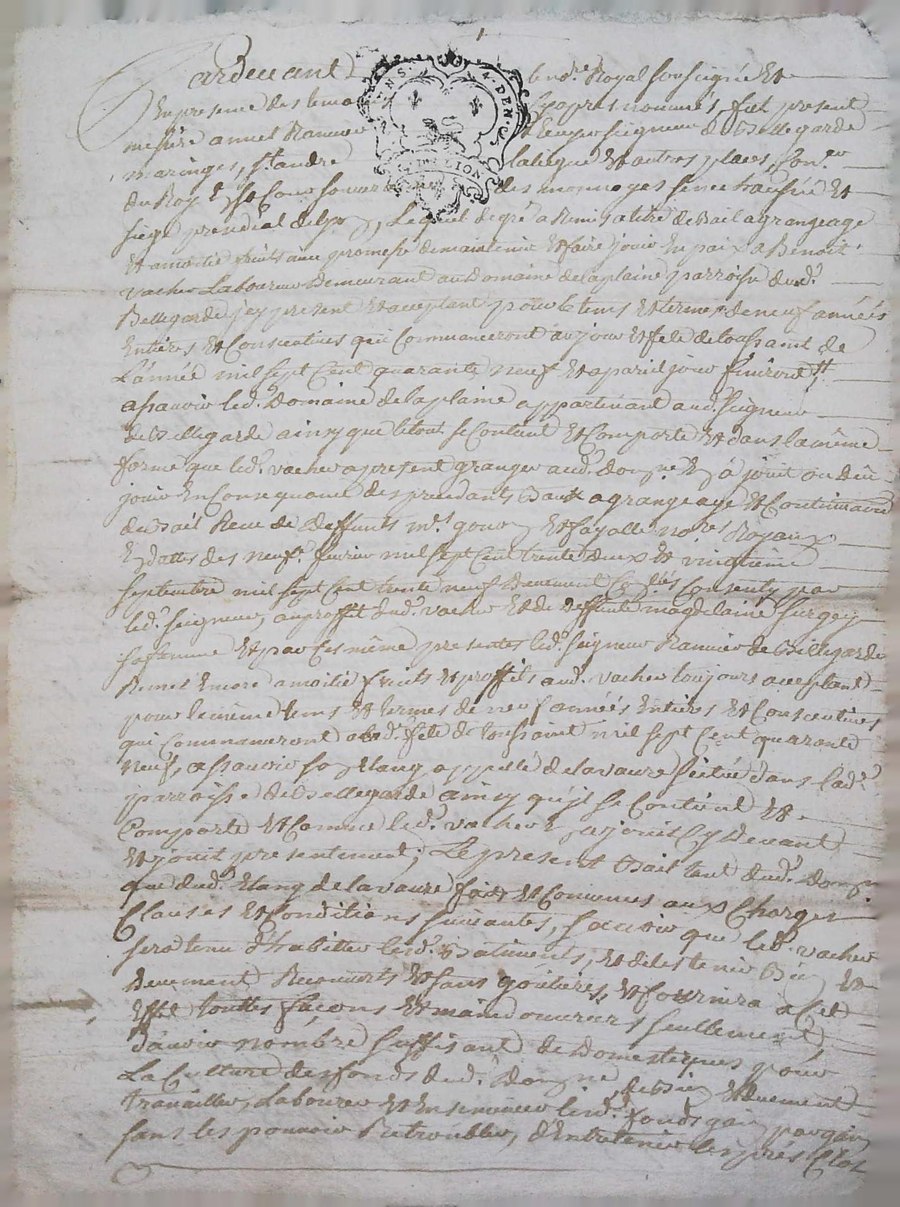 1
Pardevant le no.re Royal soussigné Et
En presence des temo cy apres nommés, fut present
messire annet Ranvier Ecuyer seigneur de Bellegarde
maringes, st. andre latiegue Et autres places, Con.er
du Roy En sa Cour souver des monnoyes senechaussée Et
siege presidial de lyon, Lequel de gré a Remis a titre de Bail a grangeage
Et a moitié fruits avec promesse de maintenir Et faire jouir En paix a Benoit
vacher Laboureur Demeurant au Domaine de la plaine parroisse dud.
Bellegarde jcy present Et acceptant pour le tems Et terme de neuf années
Entières Et Consecutives qui Commanceront au jour Et fete de toussaint de
L'année mil sept Cent quarante neuf Et a pareil jour finiront
assavoir led. Domaine de la plaine appartenant aud. seigneur
de Bellegarde ainsy que le tout se Contient Et Comporte Et dans la même
forme que led. vacher a present granger aud. Domne En a jouit ou Dû
jouir En Consequance des precedants Baux a grangeage Et Continuation
de Bail Receu de Deffunts mes. gouy Et fayolle no.res Royaux
En dattes des neuf. fevrier mil sept Cent trente deux Et vingtieme
septembre mil sept Cent trente neuf Deuement Consenty par
led. seigneur, au proffit dud. vacher Et de Deffunte magdelaine
sa femme Et par ces même presentes led. seigneur Ranvier de Bellegarde
Remet Encore a moitié fruits Et proffits aud. vacher toujours acceptant
pour le même tems Et termes de neuf années Entières Et Consecutives
qui Commanceront a lad. fete de toussaint mil sept Cent quarante
neuf, assavoir son Etang appellé de la vaure scitué dans lad.
parroisse de Bellegarde ainsy qu'jl se Contient Et
Comporte Et Comme led. vacher En a jouit Cy Devant
Et jouit presentement; Le present Bail tant dud. Domne.
que dud. Etang de la vaure fait Et Convenus aux Charges
Clauses Et Conditions suivantes, sçavoir que led. vacher
sera tenu d'habiter led. Batiments, Et de les tenir Bien Et
Deuement Recouverts Et sans goutieres, Et fournira a Cet
Effet touttes façons Et main d'oeuvres seullement
D'avoir nombre suffisant de Domestiques pour
La Culture des fonds dud. Domne, de Bien Et duement
travailler, Labourer Et Ensemencer led. fonds gain par gain
sans les pouvoir Retroubler, d'Entretenir les prés Clos